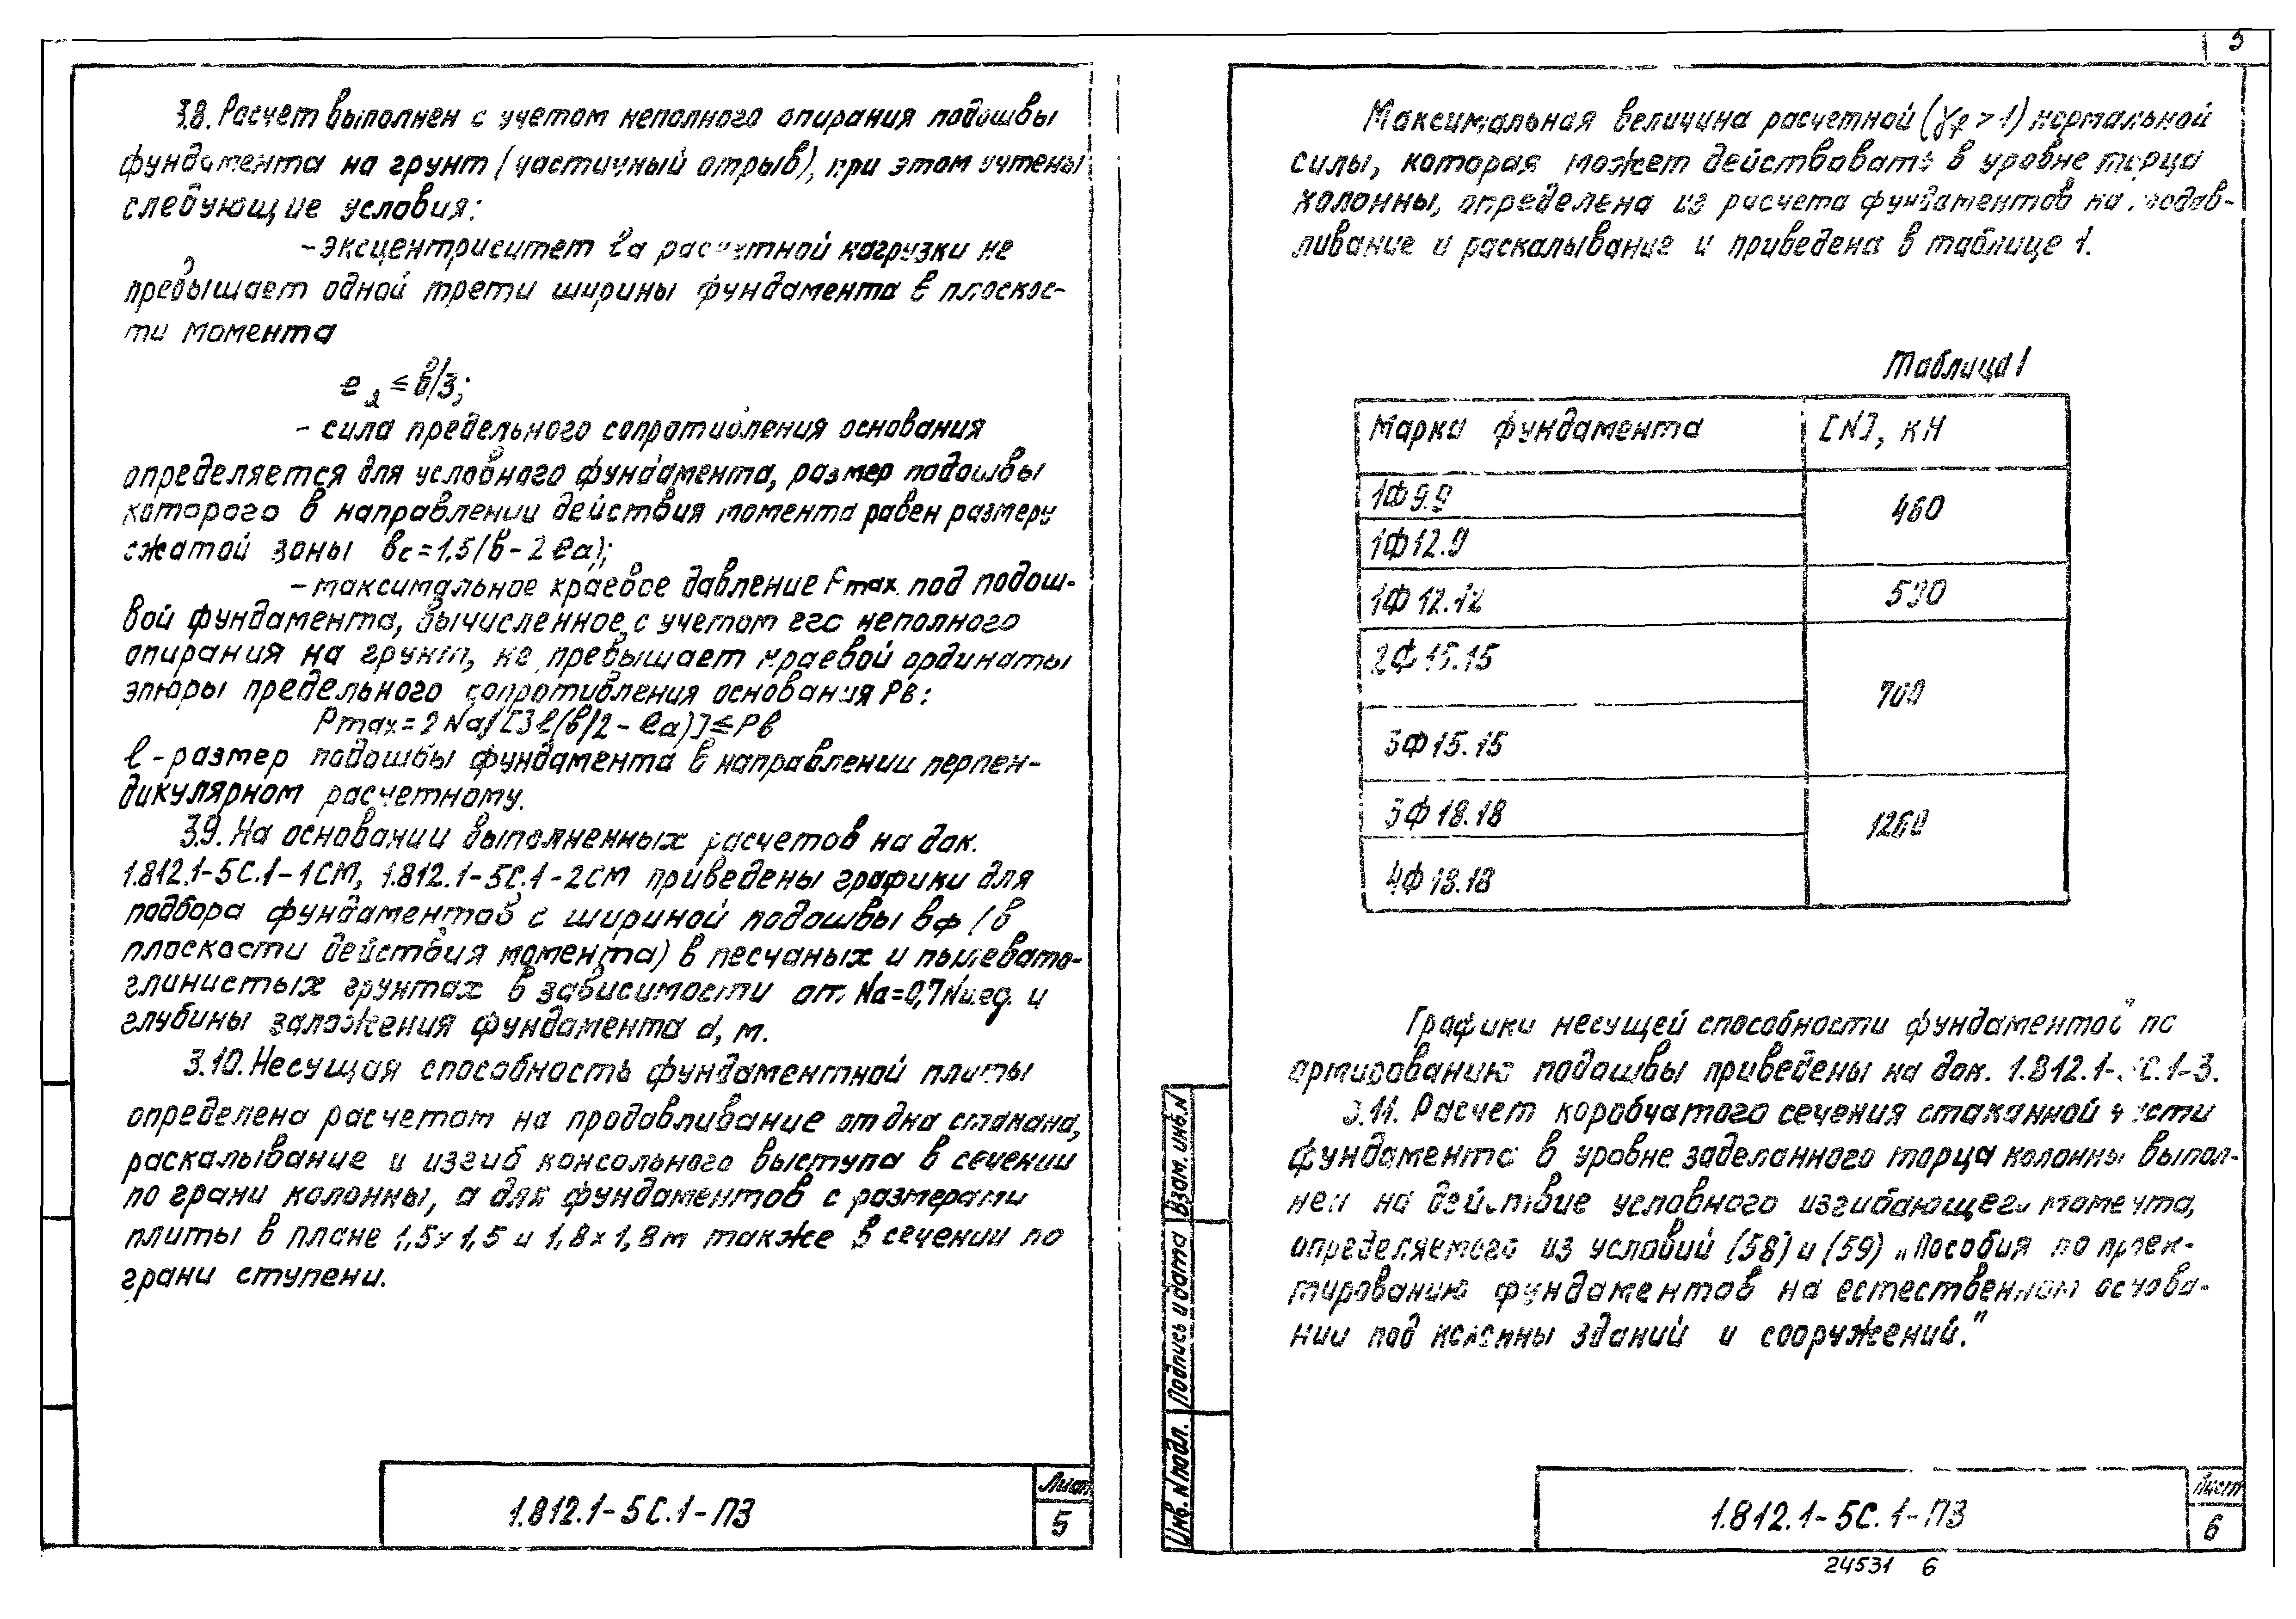 3.8. Расчет выполнен с учетом неполного опирания подошвы
фундамента на грунт (частичный отрыв), при этом учтены
следующие условия:
- эксцентриситет еа расчетной нагрузки не
превышает одной трети ширины фундамента в плоскос-
ти момента
еа ≤ в/3;
- сила предельного сопротивления основания
определяется для условного фундамента, размер подошвы
которого в направлении действия момента равен размеру
сжатой зоны вс=1,5(в-2еа);
- максимальное краевое давление Pmax под подош-
вой фундамента, вычисленное с учетом его неполного
опирания на грунт, не превышает краевой ординаты
эпюры предельного сопротивления основания Рв:
Pmax=2Na/[3ℓ(в/2-еа)]≤Рв
ℓ-размер подошвы фундамента в направлении перпен-
дикулярном расчетному.
3.9. На основании выполненных расчетов на док.
1.812.1-5С.1-1СМ, 1.812.1-5С.1-2СМ приведены графики для
подбора фундаментов с шириной подошвы вф (в
плоскости действия момента) в песчаных и пылевато-
глинистых грунтах в зависимости от Na=0,7Nи.ед. и
глубины заложения фундамента d, м.
3.10. Несущая способность фундаментной плиты
определена расчетом на продавливание от дна стакана,
раскалывание и изгиб консольного выступа в сечении
по грани колонны, а для фундаментов с размерами
плиты в плане 1,5х1,5 и 1,8х1,8м также в сечении по
грани ступени.
1.812.1-5С.1-ПЗ
Лист
5
5
Максимальная величина расчетной (γf > 1) нормальной
силы, которая может действовать в уровне торца
колонны, определена из расчета фундаментов на продав-
ливание и раскалывание и приведена в таблице 1.
Таблица 1
Марка фундамента [N], кН
1Ф9.9
460
1Ф12.9
1Ф12.12
2Ф15.15
700
3Ф15.15
3Ф18.18
1260
4Ф18.18
Графики несущей способности фундаментов по
армированию подошвы приведены на док. 1.812.1-5С.1-3.
3.11. Расчет коробчатого сечения стаканной части
фундамента в уровне заделанного торца колонны выпол-
нен на действие условного изгибающего момента,
определяемого из условий (58) и (59) „Пособия по проек-
тированию фундаментов на естественном основа-
нии под колонны зданий и сооружений."
Инв. N подл. Подпись и дата Взам. инв. N
1.812.1-5С.1-ПЗ
Лист
6
24531 6